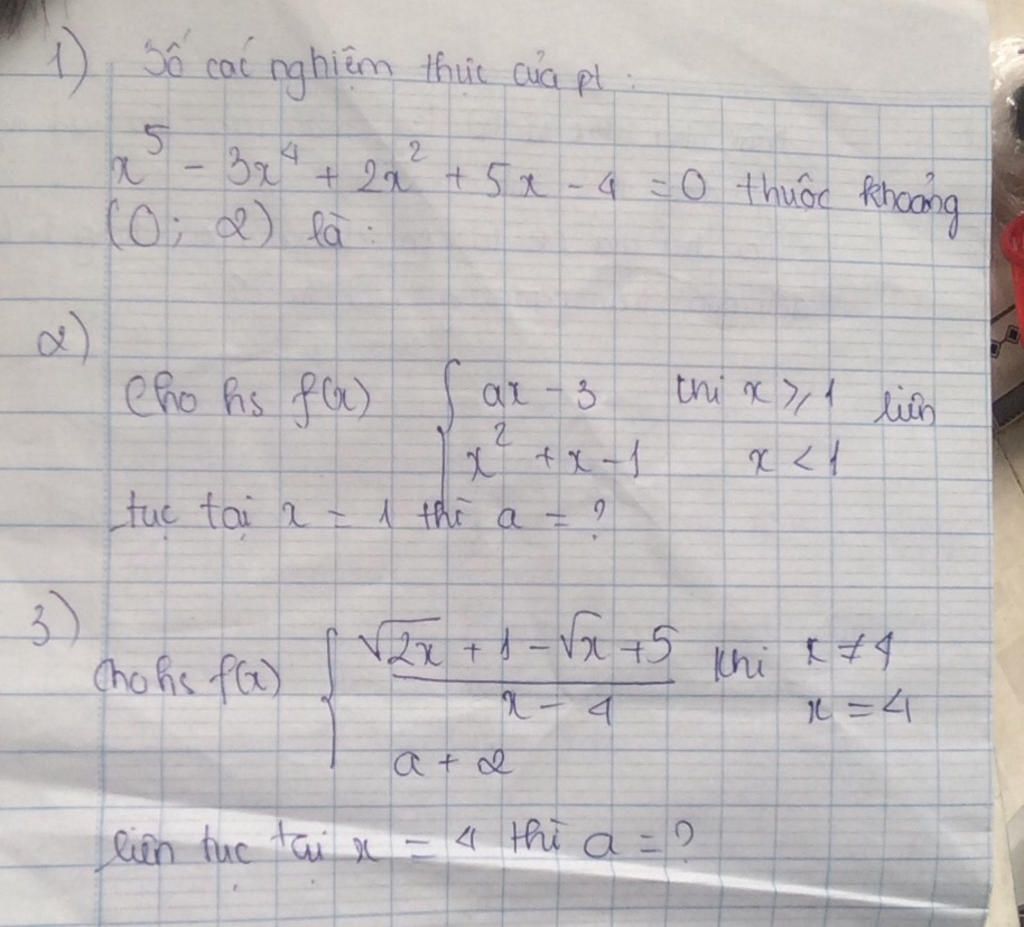 1) Số các nghiệm thực của pt :
x^5 - 3x^4 + 2x^2 + 5x - 4 = 0 thuộc khoảng
(0; 2) là :
2)
Cho hs f(x) { ax - 3 khi x ⩾ 1 liên
x^2 + x - 1 x < 1
tục tại x = 1 thì a = ?
3)
Cho hs f(x) { (√2x + 1 - √x + 5)/(x - 4) khi x ≠ 4
x = 4
a + 2
liên tục tại x = 4 thì a = ?